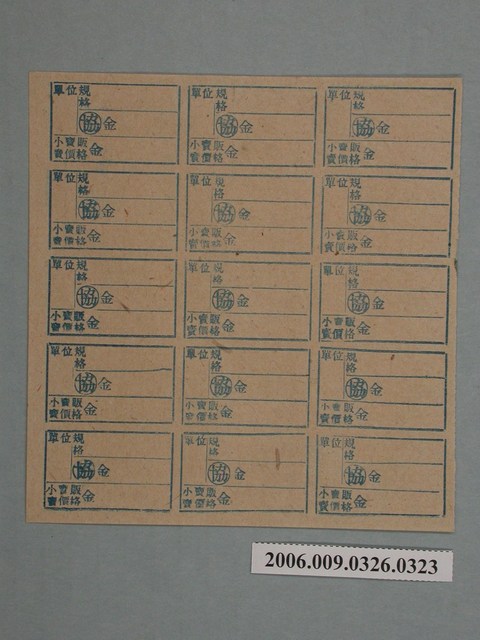 單位規
格
協金
小賣販
賣價格 金
單位規
格
協金
小賣販
賣價格 金
單位規
格
協金
小賣販
賣價格 金
單位規
格
協金
小賣販
賣價格 金
單位規
格
協金
小賣販
賣價格 金
單位規
格
協金
小賣販
賣價格 金
單位規
格
協金
小賣販
賣價格 金
單位規
格
協金
小賣販
賣價格 金
單位規
格
協金
小賣販
賣價格 金
單位規
格
協金
小賣販
賣價格 金
單位規
格
協金
小賣販
賣價格 金
單位規
格
協金
小賣販
賣價格 金
單位規
格
協金
小賣販
賣價格 金
單位規
格
協金
小賣販
賣價格 金
單位規
格
協金
小賣販
賣價格 金
2006.009.0326.0323